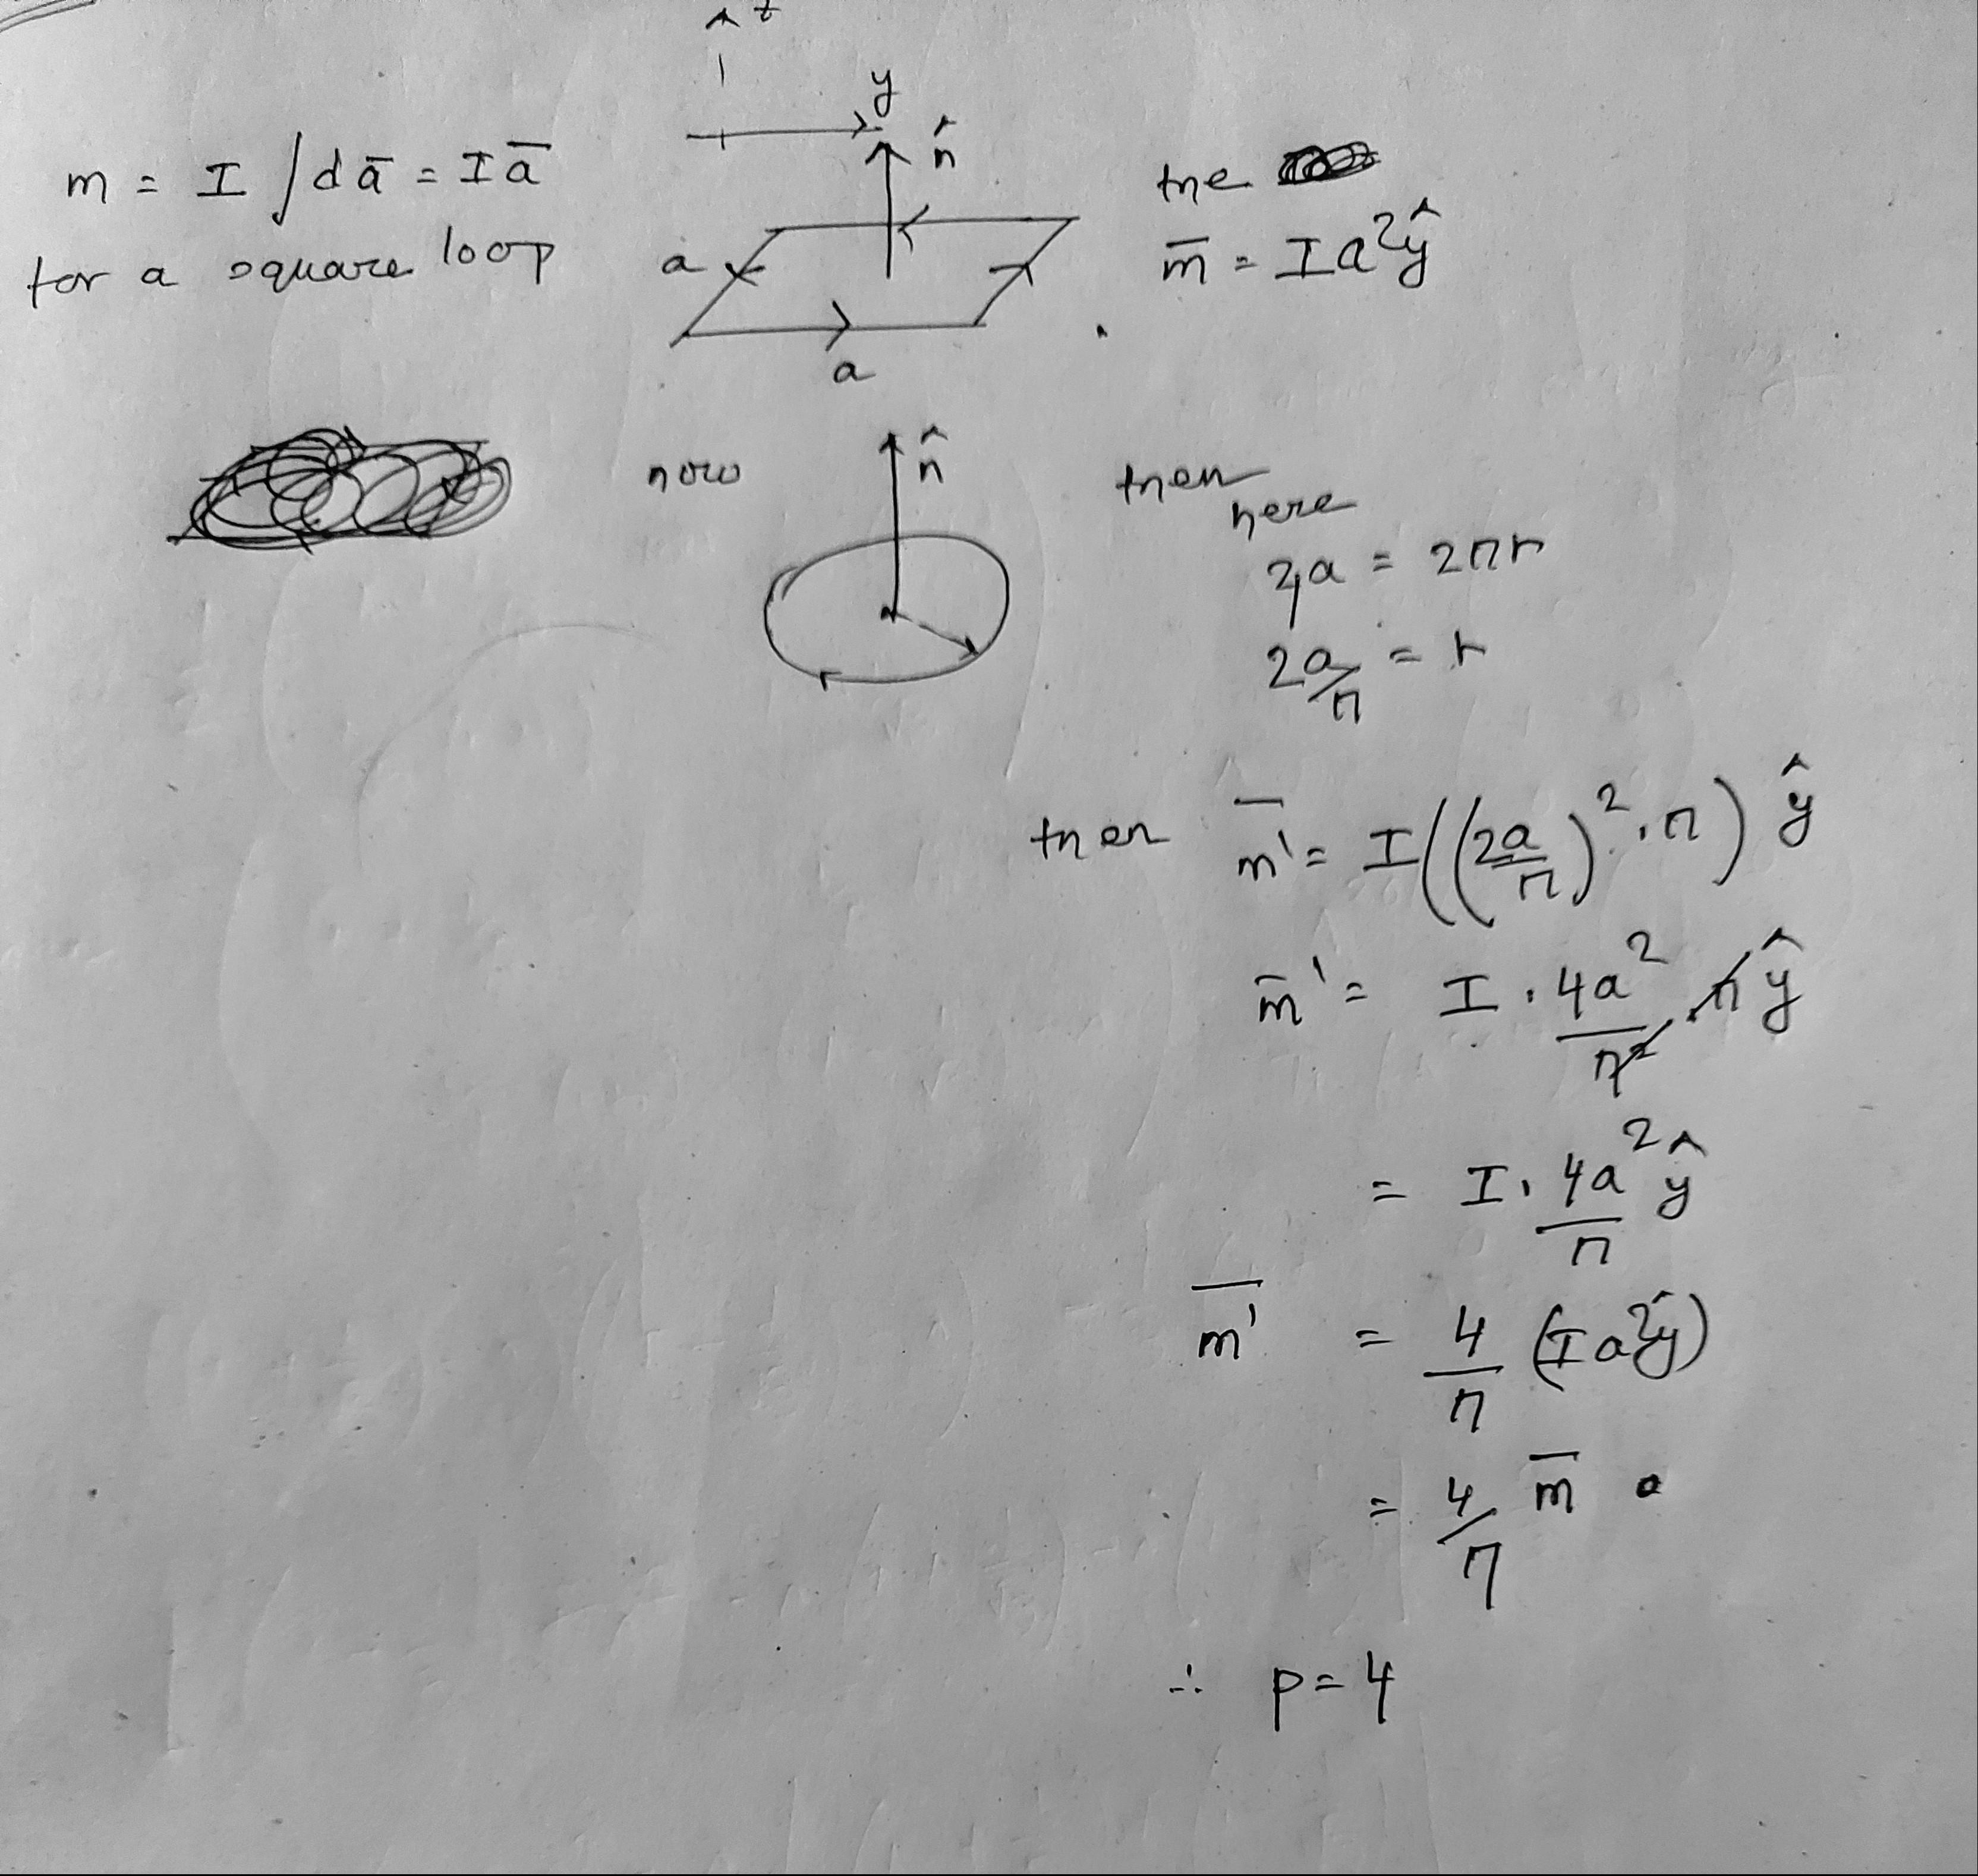 z
y
m = I ∫dā = Iā
for a square loop
n̂
a
a
the
m̄ = Ia²ŷ
now
n̂
r
then
here
4a = 2πr
2a/π = r
then m̄' = I((2a/π)².π) ŷ
m̄' = I . 4a²/π² . π ŷ
= I . 4a²/π ŷ
m̄' = 4/π (Ia²ŷ)
= 4/π m̄
∴ p = 4